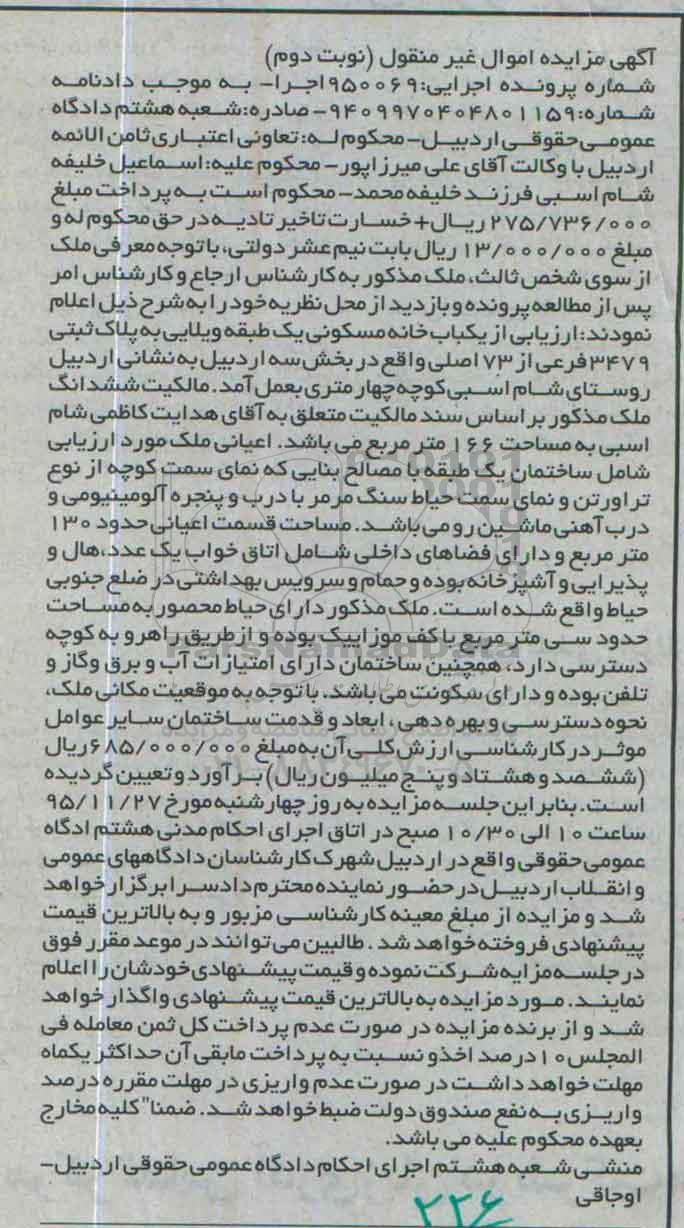 آگهی مزایده اموال غیر منقول (نوبت دوم)
شماره پرونده اجرایی:۹۵۰۰۶۹اجرا- به موجب دادنامه
شماره:۹۴۰۹۹۷۰۴۰۴۸۰۱۱۵۹- صادره:شعبه هشتم دادگاه
عمومی حقوقی اردبیل- محکوم له: تعاونی اعتباری ثامن الائمه
اردبیل با وکالت آقای علی میرزاپور- محکوم علیه:اسماعیل خلیفه
شام اسبی فرزند خلیفه محمد- محکوم است به پرداخت مبلغ
۲۷۵/۷۳۶/۰۰۰ ریال+ خسارت تاخیر تادیه در حق محکوم له و
مبلغ ۱۳/۰۰۰/۰۰۰ ریال بابت نیم عشر دولتی، با توجه معرفی ملک
از سوی شخص ثالث، ملک مذکور به کارشناس ارجاع و کارشناس امر
پس از مطالعه پرونده و بازدید از محل نظریه خود را به شرح ذیل اعلام
نمودند: ارزیابی از یکباب خانه مسکونی یک طبقه ویلایی به پلاک ثبتی
۳۴۷۹ فرعی از ۷۳ اصلی واقع در بخش سه اردبیل به نشانی اردبیل
روستای شام اسبی کوچه چهار متری بعمل آمد. مالکیت ششدانگ
ملک مذکور بر اساس سند مالکیت متعلق به آقای هدایت کاظمی شام
اسبی به مساحت ۱۶۶ متر مربع می باشد. اعیانی ملک مورد ارزیابی
شامل ساختمان یک طبقه با مصالح بنایی که نمای سمت کوچه از نوع
تراورتن و نمای سمت حیاط سنگ مرمر با درب و پنجره آلومینیومی و
درب آهنی ماشین رو می باشد. مساحت قسمت اعیانی حدود ۱۳۰
متر مربع و دارای فضاهای داخلی شامل اتاق خواب یک عدد،هال و
پذیرایی و آشپزخانه بوده و حمام و سرویس بهداشتی در ضلع جنوبی
حیاط واقع شده است. ملک مذکور دارای حیاط محصور به مساحت
حدود سی متر مربع با کف موزاییک بوده و از طریق راهرو به کوچه
دسترسی دارد، همچنین ساختمان دارای امتیازات آب و برق وگاز و
تلفن بوده و دارای سکونت می باشد. با توجه به موقعیت مکانی ملک،
نحوه دسترسی و بهره دهی ، ابعاد و قدمت ساختمان سایر عوامل
موثر در کارشناسی ارزش کلی آن به مبلغ ۶۸۵/۰۰۰/۰۰۰ریال
(ششصد و هشتاد و پنج میلیون ریال) برآورد و تعیین گردیده
است. بنابراین جلسه مزایده به روز چهارشنبه مورخ ۹۵/۱۱/۲۷
ساعت ۱۰ الی ۱۰/۳۰ صبح در اتاق اجرای احکام مدنی هشتم ادگاه
عمومی حقوقی واقع در اردبیل شهرک کارشناسان دادگاههای عمومی
و انقلاب اردبیل در حضور نماینده محترم دادسرا برگزار خواهد
شد و مزایده از مبلغ معینه کارشناسی مزبور و به بالاترین قیمت
پیشنهادی فروخته خواهد شد . طالبین می توانند در موعد مقرر فوق
در جلسه مزایه شرکت نموده و قیمت پیشنهادی خودشان را اعلام
نمایند. مورد مزایده به بالاترین قیمت پیشنهادی واگذار خواهد
شد و از برنده مزایده در صورت عدم پرداخت کل ثمن معامله فی
المجلس ۱۰درصد اخذ و نسبت به پرداخت مابقی آن حداکثر یکماه
مهلت خواهد داشت در صورت عدم واریزی در مهلت مقرره درصد
واریزی به نفع صندوق دولت ضبط خواهد شد. ضمنا" کلیه مخارج
بعهده محکوم علیه می باشد.
منشی شعبه هشتم اجرای احکام دادگاه عمومی حقوقی اردبیل-
اوجاقی
۲۲۶
ParsNamadData